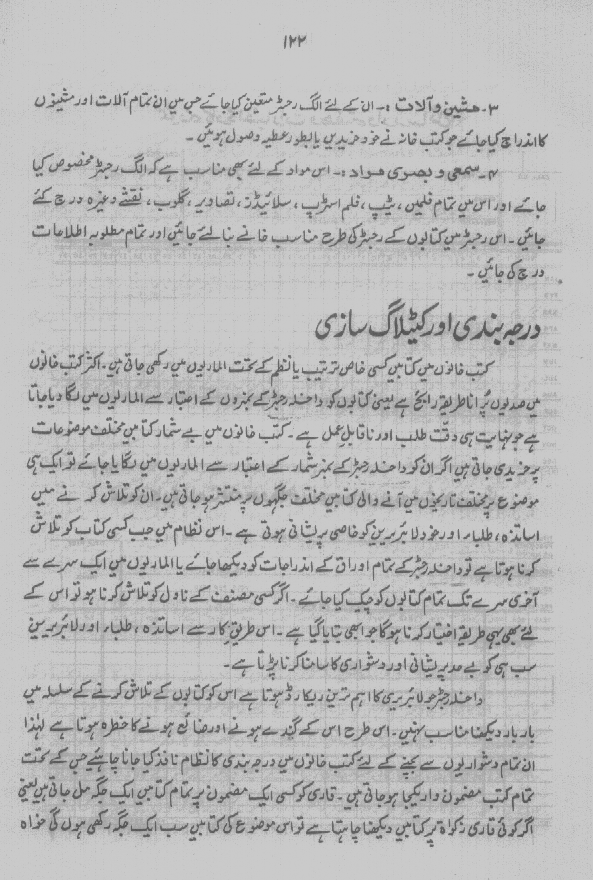 ۱۲۲
۳۔ مشین و آلات :۔ ان کے لئے الگ رجسٹر متعین کیا جائے جس میں ان تمام آلات اور مشینوں
کا اندراج کیا جائے جو کتب خانہ نے خود خریدیں یا بطور عطیہ وصول ہوئیں ۔
۴۔ سمعی و بصری مواد :۔ اس مواد کے لئے بھی مناسب ہے کہ الگ رجسٹر مخصوص کیا
جائے اور اس میں تمام فلمیں، ٹیپ، فلم اسٹرپ، سلائیڈز، تصاویر، گلوب، نقشے وغیرہ درج کئے
جائیں ۔ اس رجسٹر میں کتابوں کے رجسٹر کی طرح مناسب خانے بنائے جائیں اور تمام مطلوبہ اطلاعات
درج کی جائیں ۔
درجہ بندی اور کیٹلاگ سازی
کتب خانوں میں کتابیں کسی خاص ترتیب یا نظم کے تحت الماریوں میں رکھی جاتی ہیں ۔ اکثر کتب خانوں
میں صدیوں پُرانا طریقہ رائج ہے یعنی کتابوں کو داخلہ رجسٹر کے نمبروں کے اعتبار سے الماریوں میں لگا دیا جاتا
ہے جو نہایت ہی دقّت طلب اور ناقابلِ عمل ہے ۔ کتب خانوں میں بے شمار کتابیں مختلف موضوعات
پر خریدی جاتی ہیں اگر ان کو داخلہ رجسٹر کے نمبر شمار کے اعتبار سے الماریوں میں لگایا جائے تو ایک ہی
موضوع پر مختلف تاریخوں میں آنے والی کتابیں مختلف جگہوں پر منتشر ہو جاتی ہیں ۔ ان کو تلاش کرنے میں
اساتذہ، طلباء اور خود لائبریرین کو خاصی پریشانی ہوتی ہے ۔ اس نظام میں جب کسی کتاب کو تلاش
کرنا ہوتا ہے تو داخلہ رجسٹر کے تمام اوراق کے اندراجات کو دیکھا جائے یا الماریوں میں ایک سرے سے
آخری سرے تک تمام کتابوں کو چیک کیا جائے ۔ اگر کسی مصنف کے ناول کو تلاش کرنا ہو تو اس کے
لئے بھی یہی طریقہ اختیار کرنا ہوگا جو ابھی بتایا گیا ہے ۔ اس طریق کار سے اساتذہ، طلباء اور لائبریرین
سب ہی کو بے حد پریشانی اور دشواری کا سامنا کرنا پڑتا ہے ۔
داخلہ رجسٹر جو لائبریری کا اہم ترین ریکارڈ ہوتا ہے اس کو کتابوں کے تلاش کرنے کے سلسلہ میں
بار بار دیکھنا مناسب نہیں ۔ اس طرح اس کے گندے ہونے اور ضائع ہونے کا خطرہ ہوتا ہے لہٰذا
ان تمام دشواریوں سے بچنے کے لئے کتب خانوں میں درجہ بندی کا نظام نافذ کیا جانا چاہئے جس کے تحت
تمام کتب مضمون وار یکجا ہو جاتی ہیں ۔ قاری کو کسی ایک مضمون پر تمام کتابیں ایک جگہ مل جاتی ہیں یعنی
اگر کوئی قاری زکوٰۃ پر کتابیں دیکھنا چاہتا ہے تو اس موضوع کی کتابیں سب ایک جگہ رکھی ہوں گی خواہ